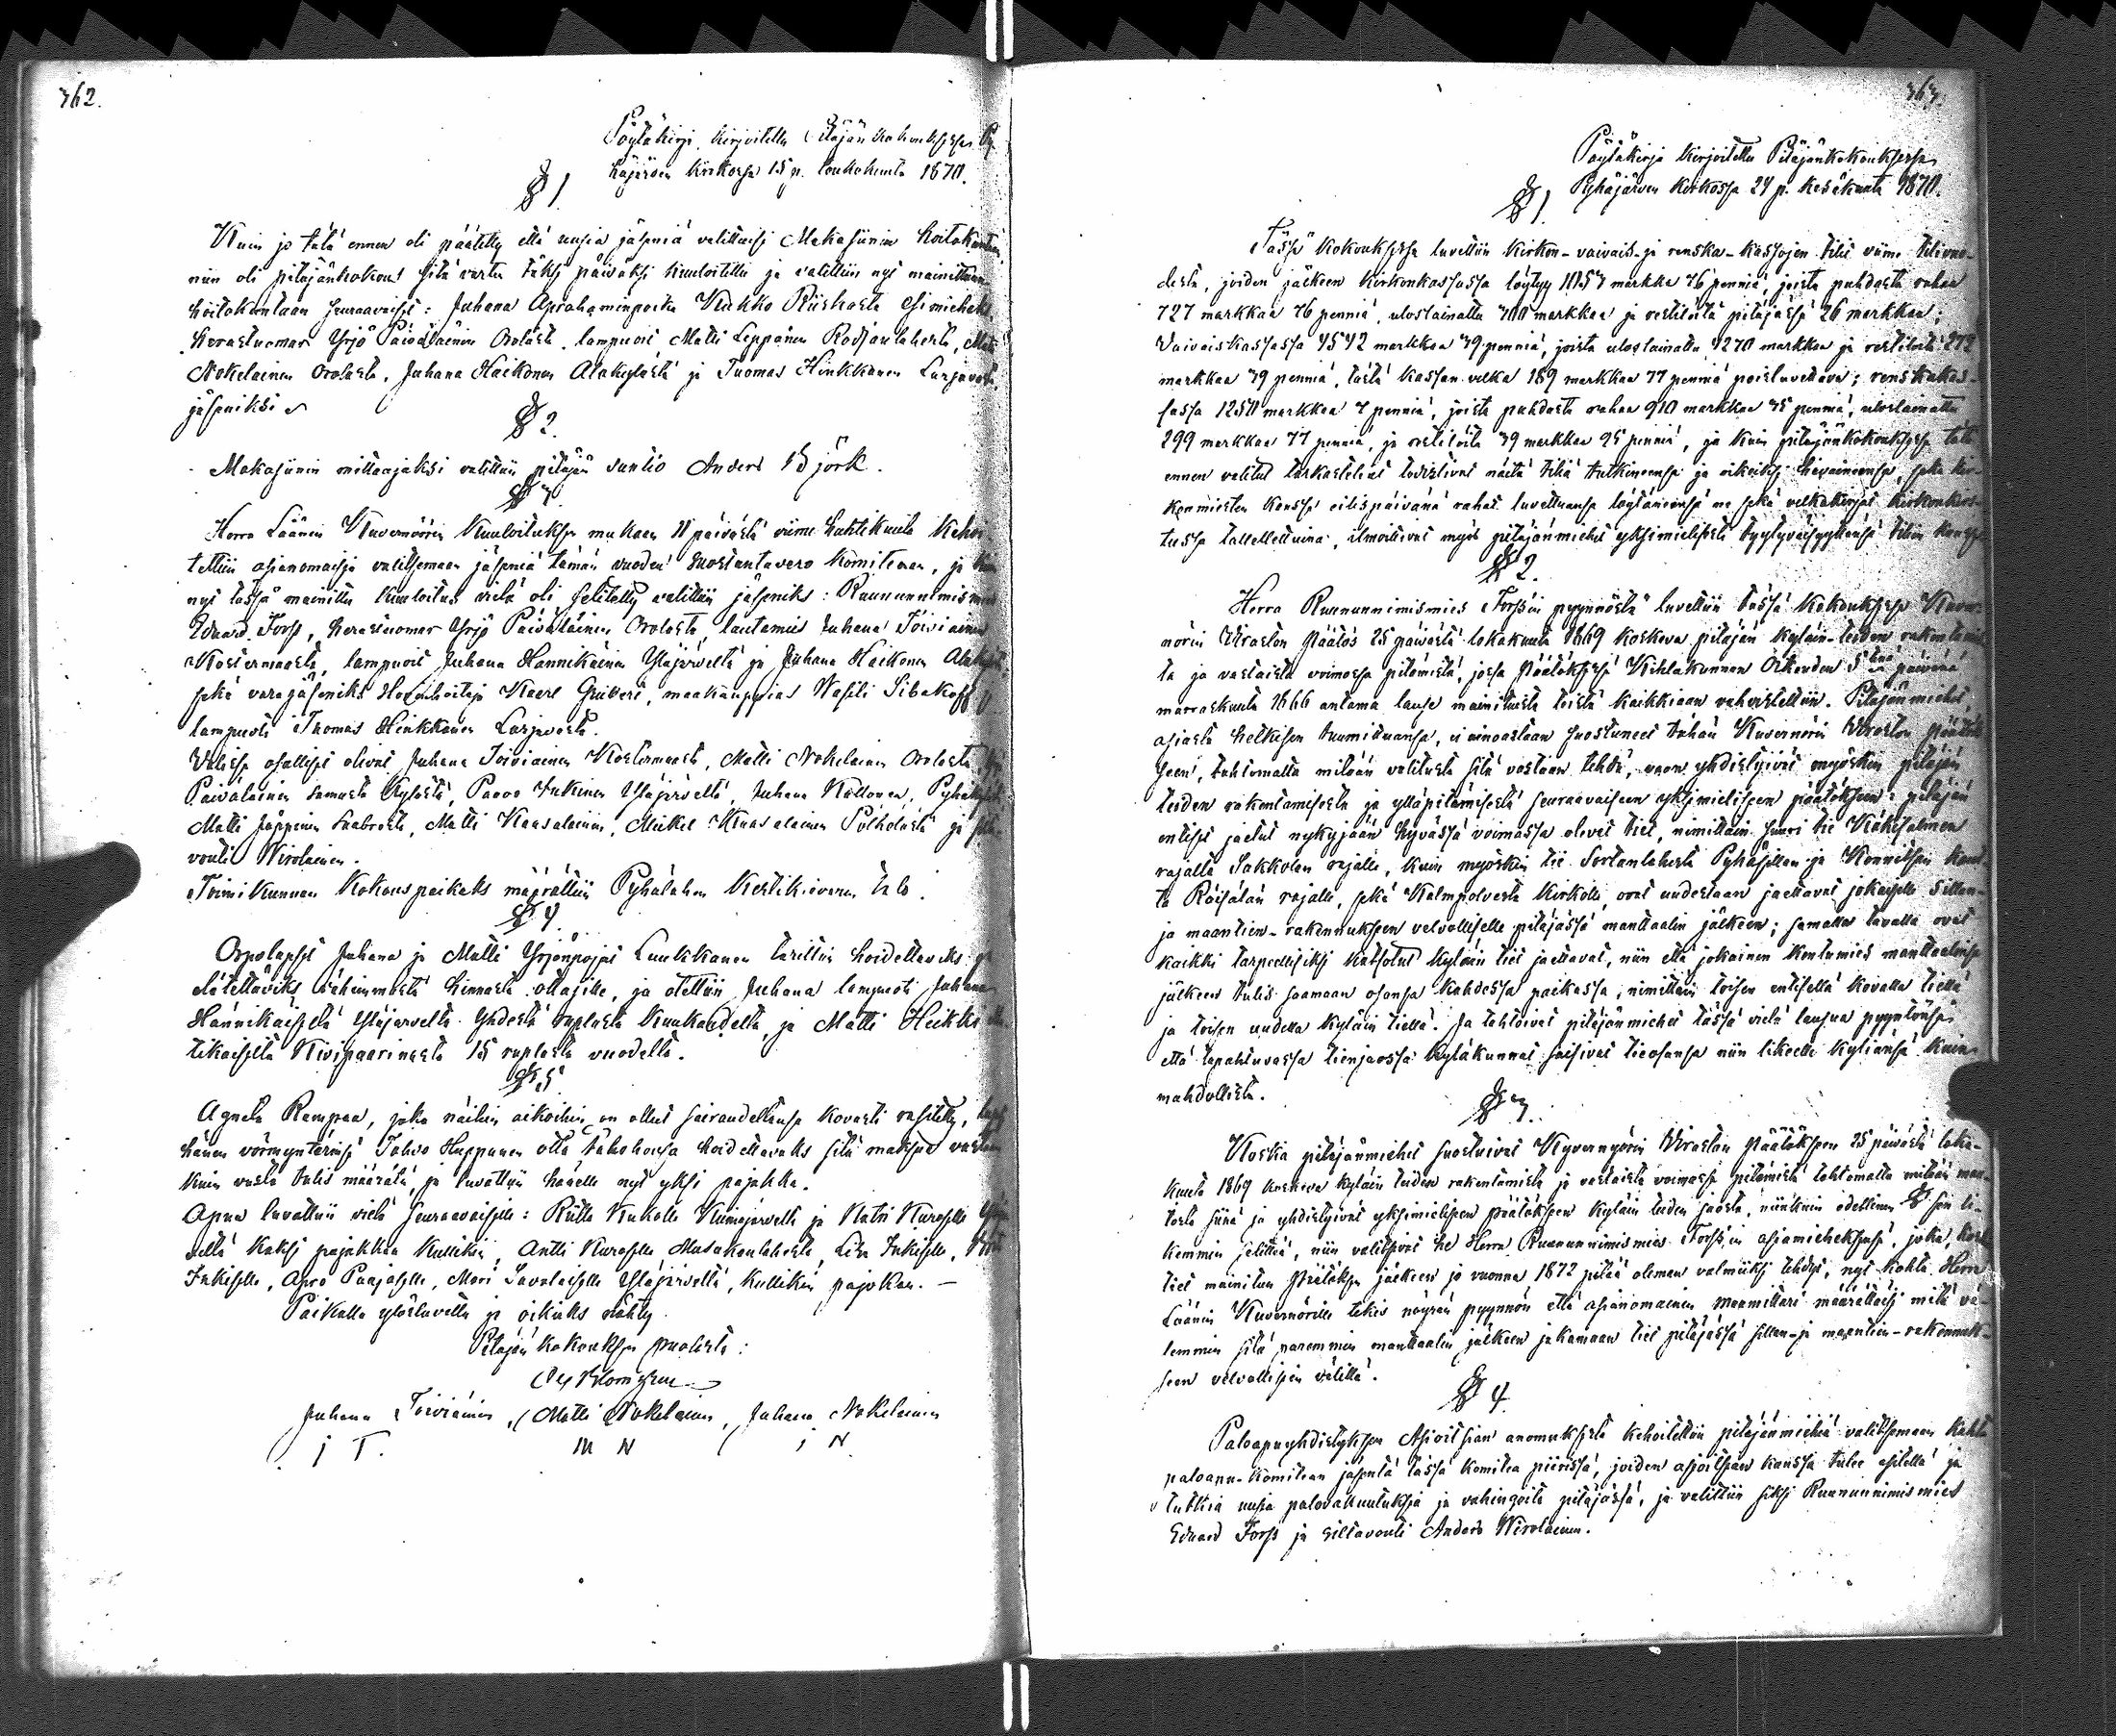 362.
Pöytäkirja, kirjoitettu Pitäjän kokouksessa Py-
häjärven kirkossa 15 p. toukokuuta 1870.
§ 1.
Kuin jo tätä ennen oli päätetty että uusia jäseniä valittaisi Makasiinin hoitokuntaan,
niin oli pitäjänkokous sitä varten täksi päiväksi kuuloitettu ja valittiin nyt mainittuun
hoitokuntaan seuraavaiset: Juhana Aprahaminpoika Kukko Riiskasta esimieheksi,
Herastuomar Yrjö Päiväläinen Orolasta, lampuoti Matti Leppänen Rotjanlahesta, Matti
Nokelainen Orolasta, Juhana Haikonen Alakylästä ja Tuomas Hinkkanen Larjavasta,
jäseniksi
§ 2.
Makasiinin mittaajaksi valittiin pitäjän suntio Anders Björk.
§ 3.
Herra Läänin Kuvernöörin kuuloituksen mukaan 11 päivästä viime huhtikuuta kehoi-
tettiin asianomaisia valitsemaan jäseniä tämän vuoden suostuntavero komiteaan, ja kuin
nyt tässä mainittu kuuloitus vielä oli selitetty valittiin jäseniks: Ruununnimismies
Eduard Forss, herastuomar Yrjö Päiväläinen Orolasta, lautamies Juhana Toiviainen
Kostermaasta, lampuoti Juhana Hannikainen Yläjärveltä ja Juhana Haikonen Alakylästä
sekä varajäseniks Hovinhoitaja Kaarl Grüberi, maakauppias Wasili Sibakoff ja
lampuoti Thomas Hinkkanen Larjavasta.
Valissa osalliset olivat Juhana Toiviainen Kostermaasta, Matti Nokelainen Orolasta, Yrjö
Päiväläinen samasta kylästä, Paavo Inkinen Yläjärveltä, Juhana Kallonen, Pyhäkylästä
Matti Jäppinen Saabrosta, Matti Kaasalainen, Mikkel Kaasalainen Pölhölästä ja silta-
vouti Wirolainen.
Toimikunnan kokouspaikaks määrättiin Pyhälahen Kestikievari talo.
§ 4.
Orpolapset Juhana ja Matti Yrjönpojat Luukkanen tarittiin hoidettaviks ja
elätettäviks vähimmästä hinnasta ottajille, ja otettiin Juhana lampuoti Juhana
Hännikaiselta Yläjärveltä yhdestä ruplasta kuukaudelta, ja Matti Heikki
tikaiselta Kivipaarineesta 15 ruplasta vuodelta.
§ 5
Agneta Rampaa, joka näihin aikoihin on ollut sairaudeltansa kovasti rasitettu,
hänen vörmynterinsä Tahvo Huppunen otta tykohonsa hoidettavaks sitä maksua vastaan
kuin vasta tulis määrätä, ja luvattiin hänelle nyt yksi pajakka.
Apua luvattiin vielä seuraavaisille: Riitta Kukolle Kiimajärveltä ja Katri Kuroselle
veltä kaksi pajakkaa kullekin, Antti Kuroselle Musakanlahesta, Liisa Inkiselle,
Inkiselle, Apro Paajaselle, Mari Savolaiselle Yläjärveltä, kullekin pajakan. —
Paikalla ylösluvettu ja oikiaks nähty
Pitäjän kokouksen puolesta:
Juhana Toiviainen, Matti Nokelainen, Juhana Nokelainen
J T. M N J N
363.
Pöytäkirja kirjoitettu Pitäjänkokouksessa
Pyhäjärven kirkossa 24 p. kesäkuuta 1870.
§ 1.
Tässä kokouksessa luvettiin kirkon- vaivais- ja renska- kassojen tilit viime tilivuo-
desta, joiden jälkeen kirkonkassassa löytyy 1053 markkaa 76 penniä, joista puhdasta rahaa
727 markkaa 76 penniä, uloslainattu 300 markkaa ja restiloita pitäjässä 26 markkaa;
Vaivaiskassassa 1542 markkaa 39 penniä, joista uloslainattu 1270 markkaa ja restiloita 272
markkaa 39 penniä, tästä kassan velka 189 markkaa 77 penniä poisluvettava; renskakas-
sassa 1250 markkaa 7 penniä, joista puhdasta rahaa 910 markkaa 35 penniä, uloslainattu
299 markkaa 77 penniä, ja restiloita 39 markkaa 95 penniä, ja kuin pitäjänkokouksessa tätä
ennen valitut tarkastelijat todistivat näitä tiliä tutkineensa ja oikeiksi havainneensa, sekä kir-
konmiesten kanssa eilispäivänä rahat luvettuansa löytäneensä ne sekä velkakirjat kirkonkas-
tussa tallellettuina, ilmoitivat myös pitäjänmiehet yksimielisesti tyytyväisyytensä tilien kanssa
§ 2.
Herra Ruununnimismies Forss'in pyynnöstä luvettiin tässä kokouksessa Kuver-
nörin Viraston päätös 25 päivästä lokakuuta 1869 koskeva pitäjän kyläin-teiden rakentamis-
ta ja vastaista voimossa pitämistä, jossa päätöksessä Kihlakunnan Oikeuden 5tenä päivänä
marraskuuta 1866 antama lause mainituista teistä kaikkiaan vahvistettiin. Pitäjänmiehet
asiasta hetkisen tuumittuansa, ei ainoastaan suostuneet tähän Kuvernörin Viraston päätök-
seen, tahtomatta mitään valitusta sitä vastaan tehdä, vaan yhdistyivät myöskin pitäjän
teiden rakentamisesta ja ylläpitämisestä seuraavaiseen yksimieliseen päätökseen: pitäjän
entiset jaetut nykyjään hyvässä voimassa olevat tiet, nimittäin suuri tie Käkisalmen
rajalta Sakkolan rajalle, kuin myöskin tie Sortanlahesta Pyhäsillan ja Konnitsan kaut-
ta Räisälän rajalle, sekä Kalmpolvesta kirkolle, ovat uudestaan jaettavat jokaiselle sillan-
ja maantien-rakennukseen velvolliselle pitäjässä manttaalin jälkeen; samalla tavalla ovat
kaikki tarpeellisiksi katsotut kyläin tiet jaettavat, niin että jokainen kontumies manttaalinsa
jälkeen tulis saamaan osansa kahdessa paikassa, nimittäin toisen entisellä kovalla tiellä
ja toisen uudella kyläin tiellä. Ja tahtoivat pitäjänmiehet tässä vielä lausua pyyntönsä,
että tapahtuvassa tienjaossa kyläkunnat saisivat tieosansa niin likeelle kyliänsä kuin
mahdollista.
§ 3.
Koska pitäjänmiehet suostuivat Kyvernyörin Viraston päätökseen 25 päivästä loka-
kuuta 1869 koskeva kyläin teiden rakentamista ja vastaista voimassa pitämistä tahtomatta mitään muu-
tosta siinä ja yhdistyivät yksimielisen päätökseen kyläin teiden jaosta, niinkuin edellinen § sen li-
kemmin selittää, niin valitsivat he Herra Ruununnimismies Forss'in asiamieheksensä, joka, koska
tiet mainitun päätöksen jälkeen jo vuonna 1872 pitää oleman valmiiksi tehdyt, nyt kohta Herra
Läänin Kuvernörille tekis nöyrän pyynnön että asianomainen maamittari määrättäisi mitä vä-
lemmin sitä paremmin manttaalin jälkeen jakamaan tiet pitäjässä sillan- ja maantien-rakennuk-
seen velvollisien välillä.
§ 4.
Paloapuyhdistyksen Asioitsian anomuksesta kehoitettiin pitäjänmiehiä valitsemaan kahta
paloapu-komitean jäsentä tässä komitea piirissä, joiden asioitsian kanssa tulee esitellä ja
tutkia uusia palovakuutuksia ja vahingoita pitäjässä, ja valittiin siksi Ruununnimismies
Eduard Forss ja siltavouti Anders Wirolainen.